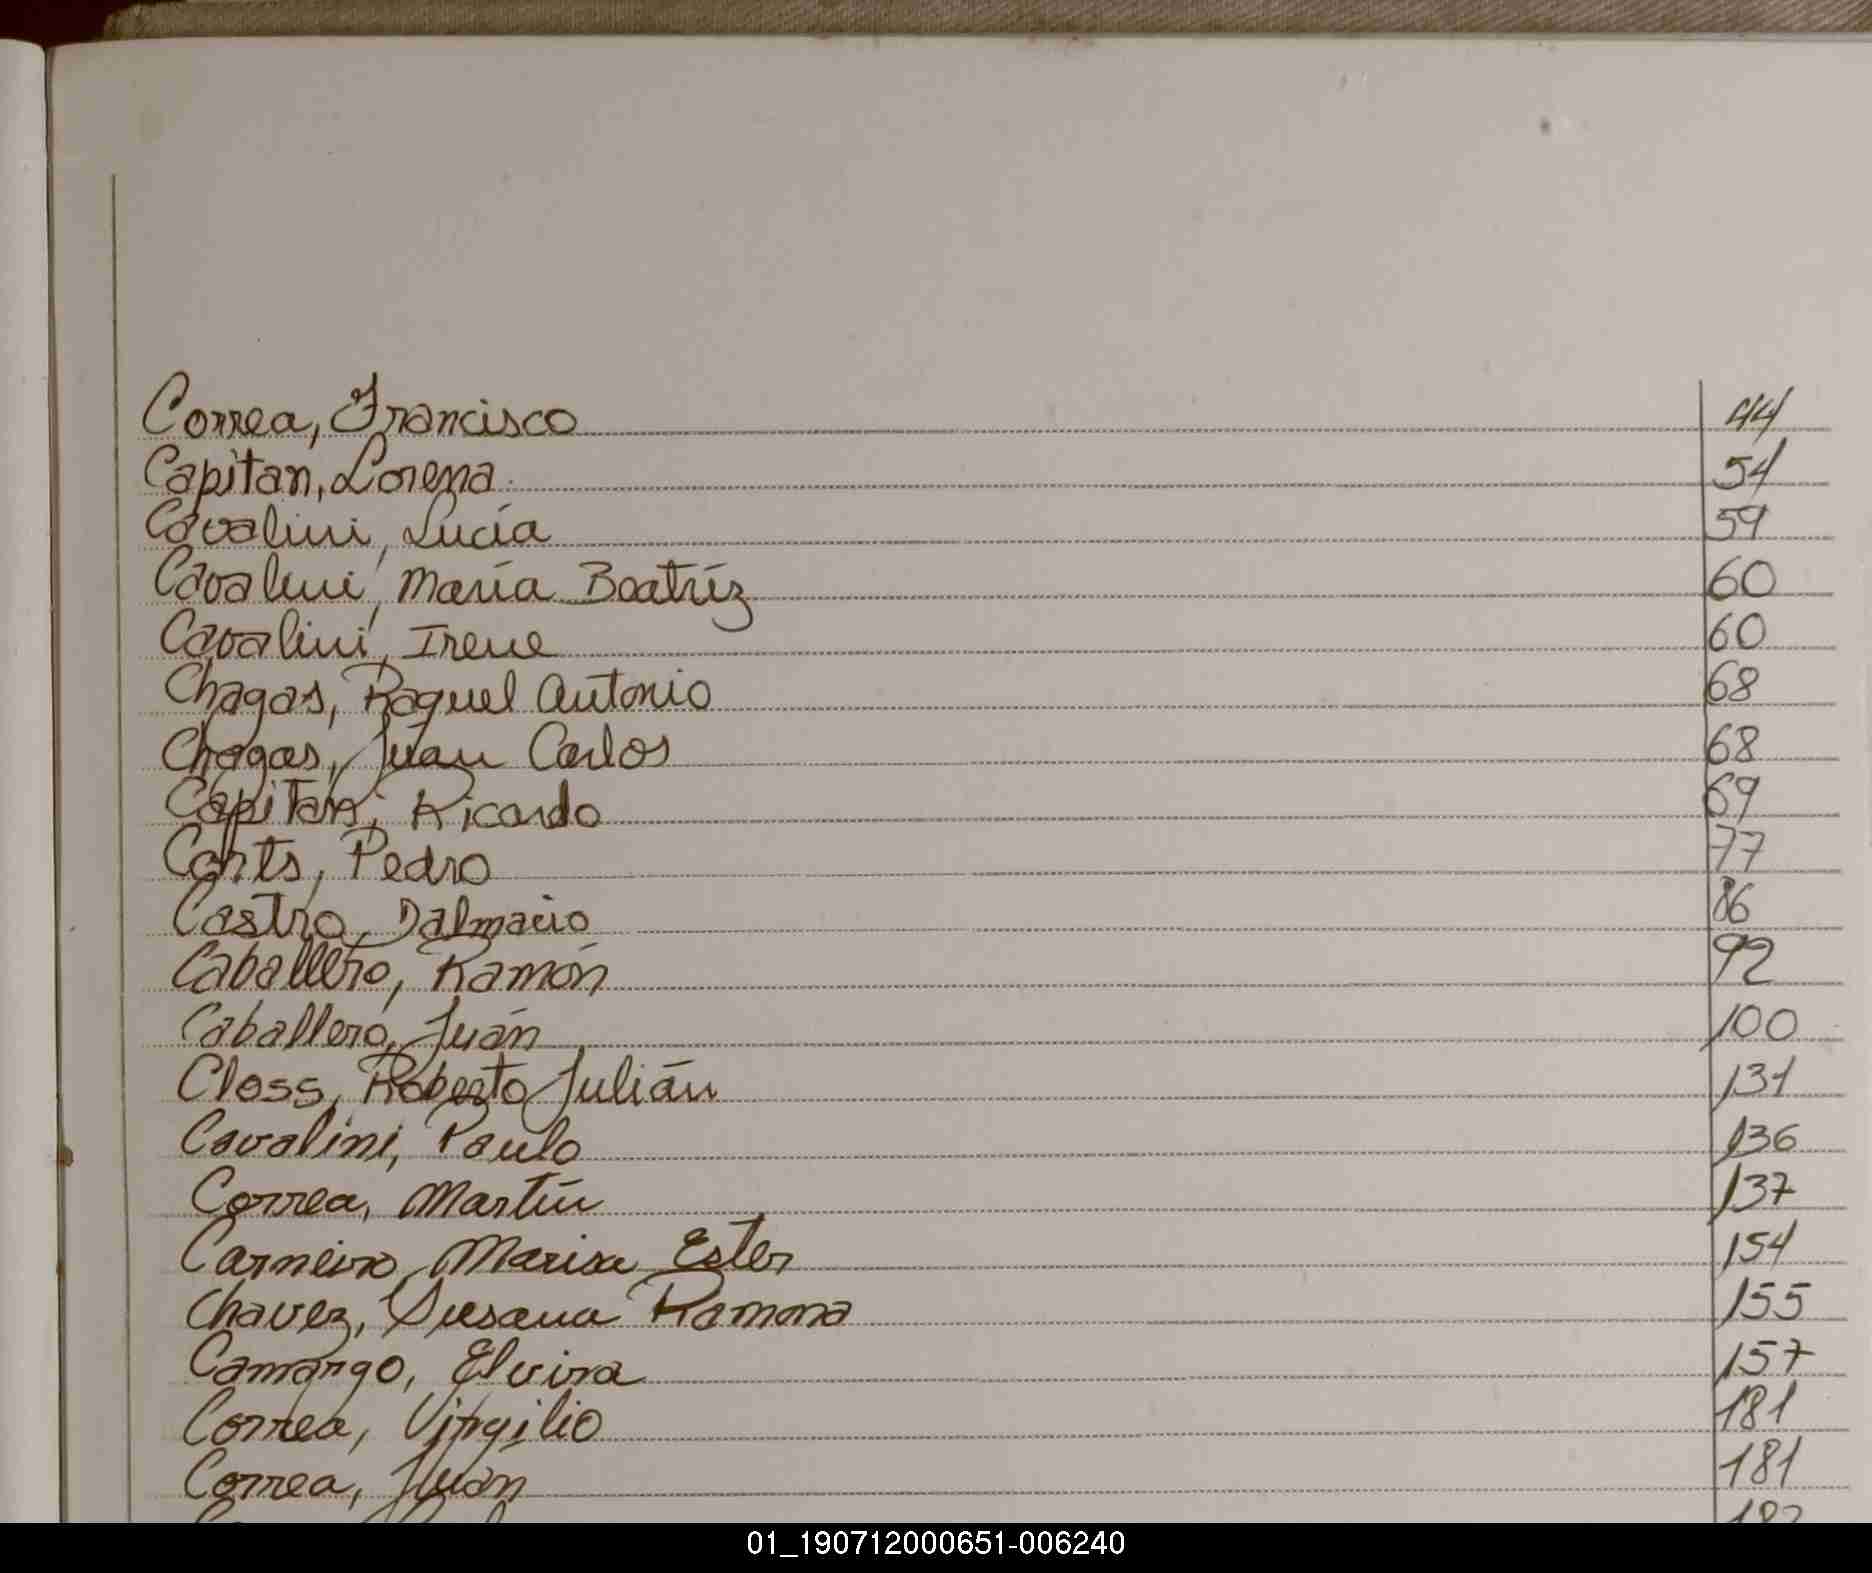 Correa, Francisco 44
Capitan, Lorena 54
Cavalini, Lucía 59
Cavalini, María Beatríz 60
Cavalini, Irene 60
Chagas, Raquel Antonio 68
Chagas, Juan Carlos 68
Capitan, Ricardo 69
Pedro 77
Castro, Dalmacio 86
Caballero, Ramón 92
Caballero, Juán 100
Closs, Roberto Julián 131
Cavalini, Paulo 136
Correa, Martín 137
Carneiro, Marisa Ester 154
Chavez, Susana Ramona 155
Camargo, Elvira 157
Correa, Virgilio 181
Correa, Juan 181
01_190712000651-006240